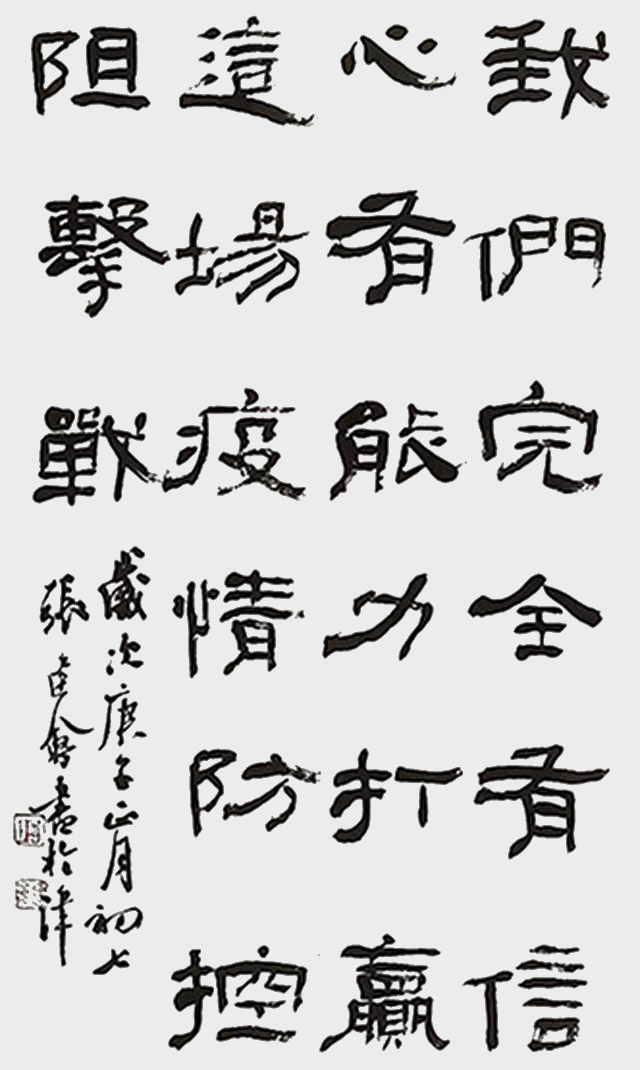 我們完全有信
心有能力打贏
這場疫情防控
阻擊戰
歲次庚子正月初七
張 會書於津